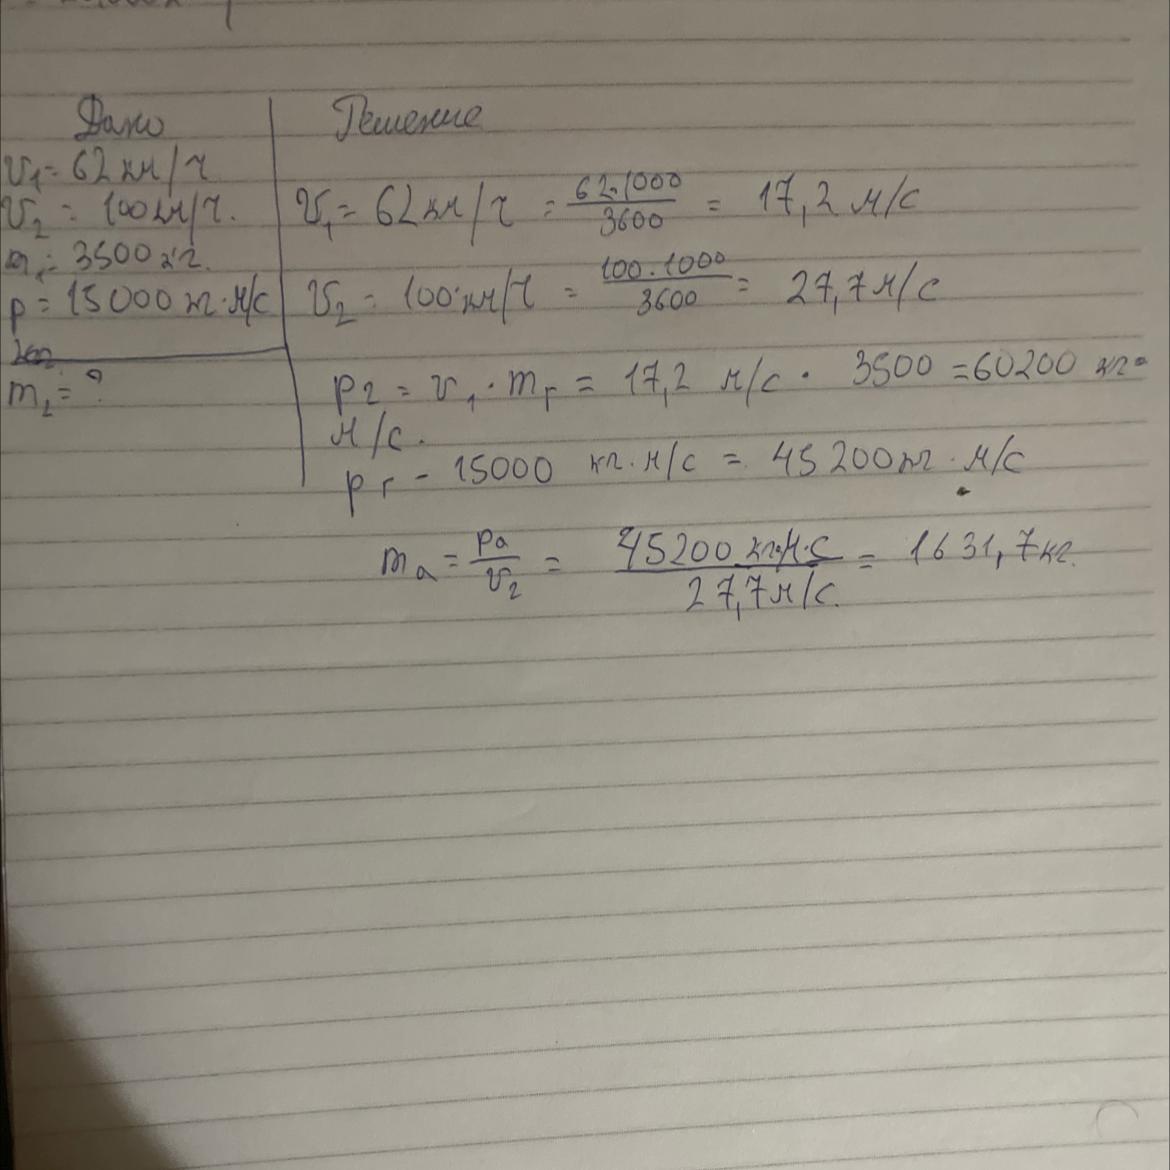 Дано
Решение
v₁ = 62 км/ч
v₂ = 100 км/ч.
m₁ = 3500 кг.
p = 15000 кг·м/с
m₂ = ?
v₁ = 62 км/ч = 62·1000/3600 = 17,2 м/с
v₂ = 100 км/ч = 100·1000/3600 = 27,7 м/с
p г = v₁ · m г = 17,2 м/с · 3500 = 60200 кг·
м/с.
p г - 15000 кг·м/с = 45200 кг·м/с
m а = p а/v₂ = 45200 кг·м·с/27,7 м/с. = 1631,7 кг.